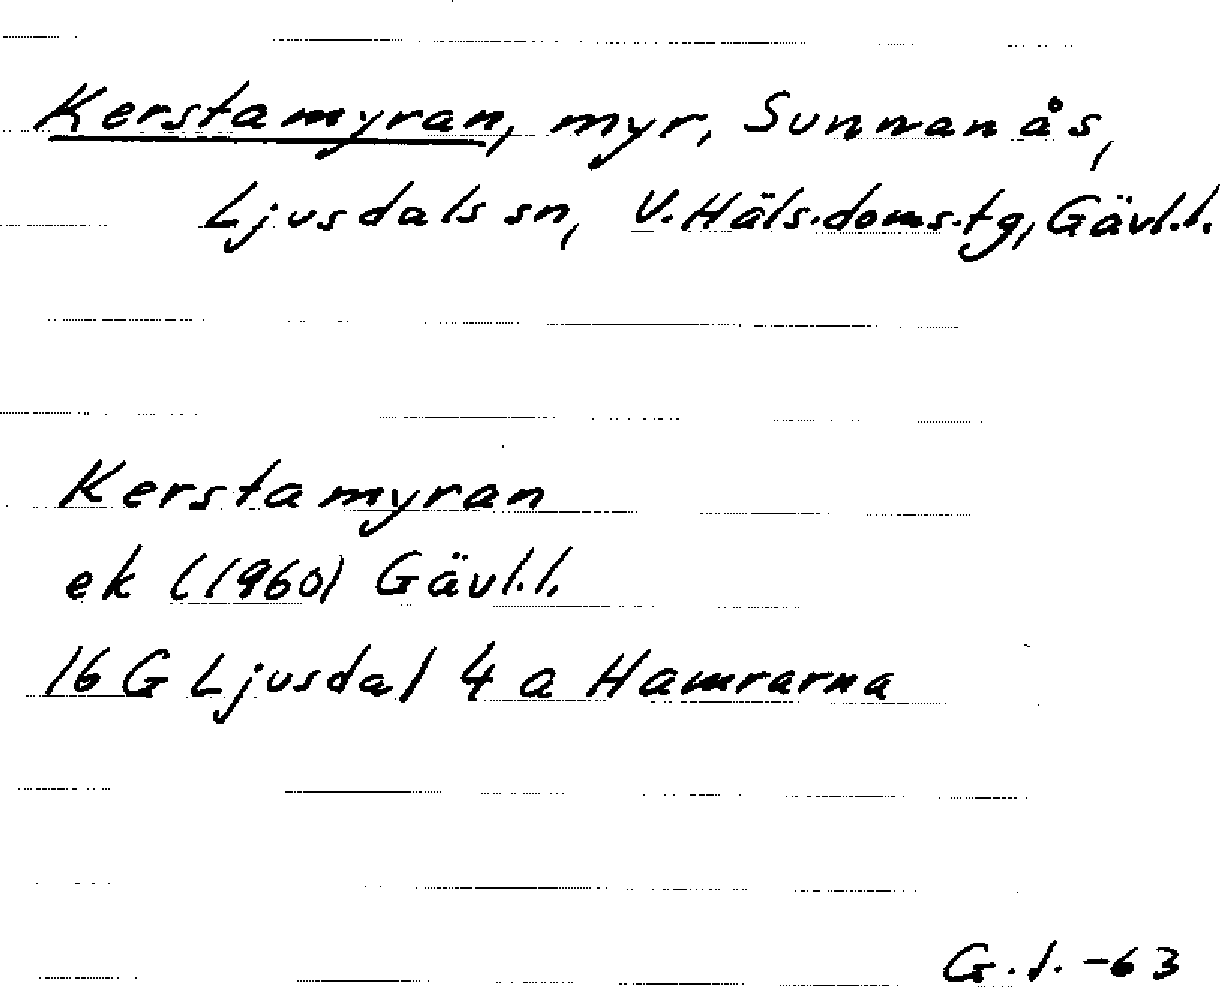 Kerstamyran, myr, Sunnanås,
Ljusdals sn, V. Häls. doms. tg, Gävl. l.
Kerstamyran
ek (1960) Gävl. l.
16 G Ljusdal 4 a Hamrarna
-63